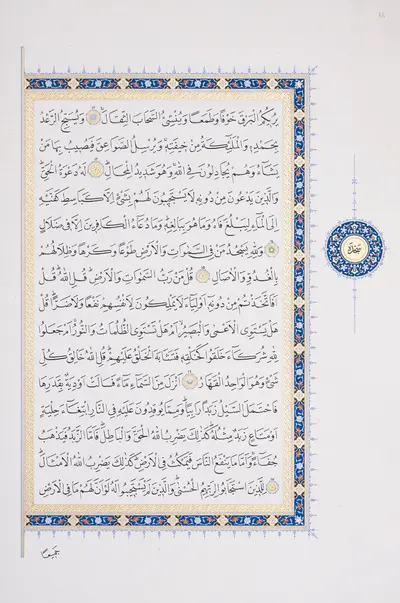 يُرِيكُمُ الْبَرْقَ خَوْفًا وَطَمَعًا وَيُنْشِئُ السَّحَابَ الثِّقَالَ وَيُسَبِّحُ الرَّعْدُ
بِحَمْدِهِ وَالْمَلٰئِكَةُ مِنْ خِيفَتِهِ وَيُرْسِلُ الصَّوَاعِقَ فَيُصِيبُ بِهَا مَنْ
يَشَاءُ وَهُمْ يُجَادِلُونَ فِي اللّٰهِ وَهُوَ شَدِيدُ الْمِحَالِ لَهُ دَعْوَةُ الْحَقِّ
وَالَّذِينَ يَدْعُونَ مِنْ دُونِهِ لَا يَسْتَجِيبُونَ لَهُمْ بِشَيْءٍ إِلَّا كَبَاسِطِ كَفَّيْهِ
إِلَى الْمَاءِ لِيَبْلُغَ فَاهُ وَمَا هُوَ بِبَالِغِهِ وَمَا دُعَاءُ الْكَافِرِينَ إِلَّا فِي ضَلَالٍ
وَلِلّٰهِ يَسْجُدُ مَنْ فِي السَّمٰوَاتِ وَالْأَرْضِ طَوْعًا وَكَرْهًا وَظِلَالُهُمْ
بِالْغُدُوِّ وَالْآصَالِ قُلْ مَنْ رَبُّ السَّمٰوَاتِ وَالْأَرْضِ قُلِ اللّٰهُ قُلْ
أَفَاتَّخَذْتُمْ مِنْ دُونِهِ أَوْلِيَاءَ لَا يَمْلِكُونَ لِأَنْفُسِهِمْ نَفْعًا وَلَا ضَرًّا قُلْ
هَلْ يَسْتَوِي الْأَعْمٰى وَالْبَصِيرُ أَمْ هَلْ تَسْتَوِي الظُّلُمَاتُ وَالنُّورُ أَمْ جَعَلُوا
لِلّٰهِ شُرَكَاءَ خَلَقُوا كَخَلْقِهِ فَتَشَابَهَ الْخَلْقُ عَلَيْهِمْ قُلِ اللّٰهُ خَالِقُ كُلِّ
شَيْءٍ وَهُوَ الْوَاحِدُ الْقَهَّارُ أَنْزَلَ مِنَ السَّمَاءِ مَاءً فَسَالَتْ أَوْدِيَةٌ بِقَدَرِهَا
فَاحْتَمَلَ السَّيْلُ زَبَدًا رَابِيًا وَمِمَّا يُوقِدُونَ عَلَيْهِ فِي النَّارِ ابْتِغَاءَ حِلْيَةٍ
أَوْ مَتَاعٍ زَبَدٌ مِثْلُهُ كَذٰلِكَ يَضْرِبُ اللّٰهُ الْحَقَّ وَالْبَاطِلَ فَأَمَّا الزَّبَدُ فَيَذْهَبُ
جُفَاءً وَأَمَّا مَا يَنْفَعُ النَّاسَ فَيَمْكُثُ فِي الْأَرْضِ كَذٰلِكَ يَضْرِبُ اللّٰهُ الْأَمْثَالَ
لِلَّذِينَ اسْتَجَابُوا لِرَبِّهِمُ الْحُسْنٰى وَالَّذِينَ لَمْ يَسْتَجِيبُوا لَهُ لَوْ أَنَّ لَهُمْ مَا فِي الْأَرْضِ
جميعا
سجدة